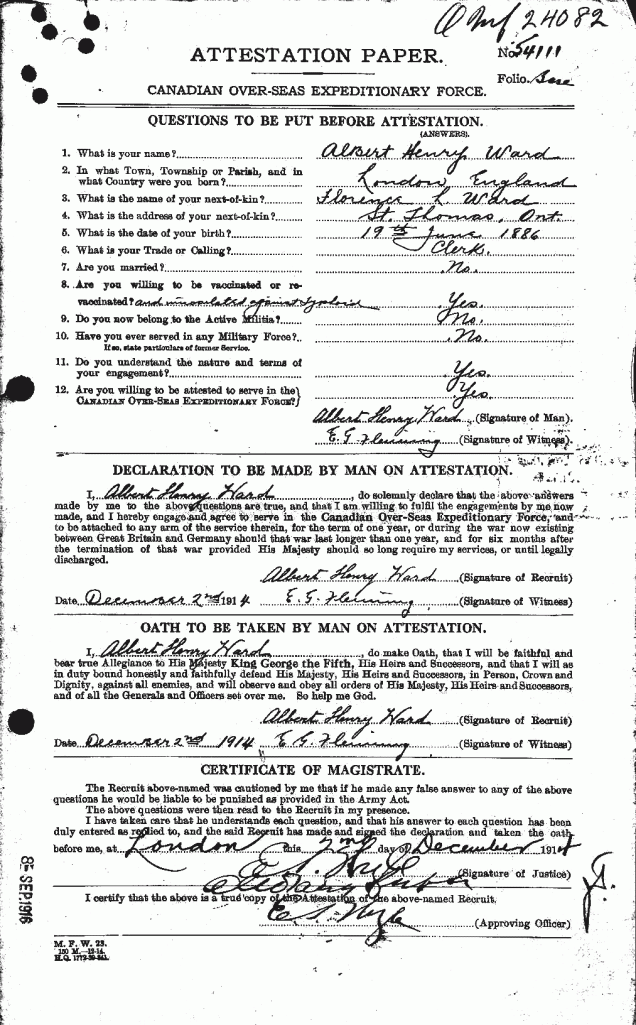 24082
ATTESTATION PAPER.
No. 54111
Folio.
CANADIAN OVER-SEAS EXPEDITIONARY FORCE.
QUESTIONS TO BE PUT BEFORE ATTESTATION.
(ANSWERS).
1. What is your name? Albert Henry Ward
2. In what Town, Township or Parish, and in
what Country were you born? London, England
3. What is the name of your next-of-kin? Florence L Ward
4. What is the address of your next-of-kin? St. Thomas, Ont.
5. What is the date of your birth? 19th June 1886
6. What is your Trade or Calling? Clerk.
7. Are you married? No.
8. Are you willing to be vaccinated or re-
vaccinated? and inoculated against typhoid Yes.
9. Do you now belong to the Active Militia? No.
10. Have you ever served in any Military Force? No.
If so, state particulars of former Service.
11. Do you understand the nature and terms of
your engagement? Yes.
12. Are you willing to be attested to serve in the
CANADIAN OVER-SEAS EXPEDITIONARY FORCE? Yes.
Albert Henry Ward (Signature of Man).
E. G. Fleming (Signature of Witness).
DECLARATION TO BE MADE BY MAN ON ATTESTATION.
I, Albert Henry Ward, do solemnly declare that the above answers
made by me to the above questions are true, and that I am willing to fulfil the engagements by me now
made, and I hereby engage and agree to serve in the Canadian Over-Seas Expeditionary Force, and
to be attached to any arm of the service therein, for the term of one year, or during the war now existing
between Great Britain and Germany should that war last longer than one year, and for six months after
the termination of that war provided His Majesty should so long require my services, or until legally
discharged.
Albert Henry Ward (Signature of Recruit)
Date December 2nd 1914 E. G. Fleming (Signature of Witness)
OATH TO BE TAKEN BY MAN ON ATTESTATION.
I, Albert Henry Ward, do make Oath, that I will be faithful and
bear true Allegiance to His Majesty King George the Fifth, His Heirs and Successors, and that I will as
in duty bound honestly and faithfully defend His Majesty, His Heirs and Successors, in Person, Crown and
Dignity, against all enemies, and will observe and obey all orders of His Majesty, His Heirs and Successors,
and of all the Generals and Officers set over me. So help me God.
Albert Henry Ward (Signature of Recruit)
Date December 2nd 1914 E G Fleming (Signature of Witness)
CERTIFICATE OF MAGISTRATE.
The Recruit above-named was cautioned by me that if he made any false answer to any of the above
questions he would be liable to be punished as provided in the Army Act.
The above questions were then read to the Recruit in my presence.
I have taken care that he understands each question, and that his answer to each question has been
duly entered as replied to, and the said Recruit has made and signed the declaration and taken the oath
before me, at London this 2nd day of December 1914
(Signature of Justice)
I certify that the above is a true copy of the Attestation of the above-named Recruit.
(Approving Officer)
8- SEP 1916
M. F. W. 23.
150 M.—12-14.
H.Q. 1772-39-841.